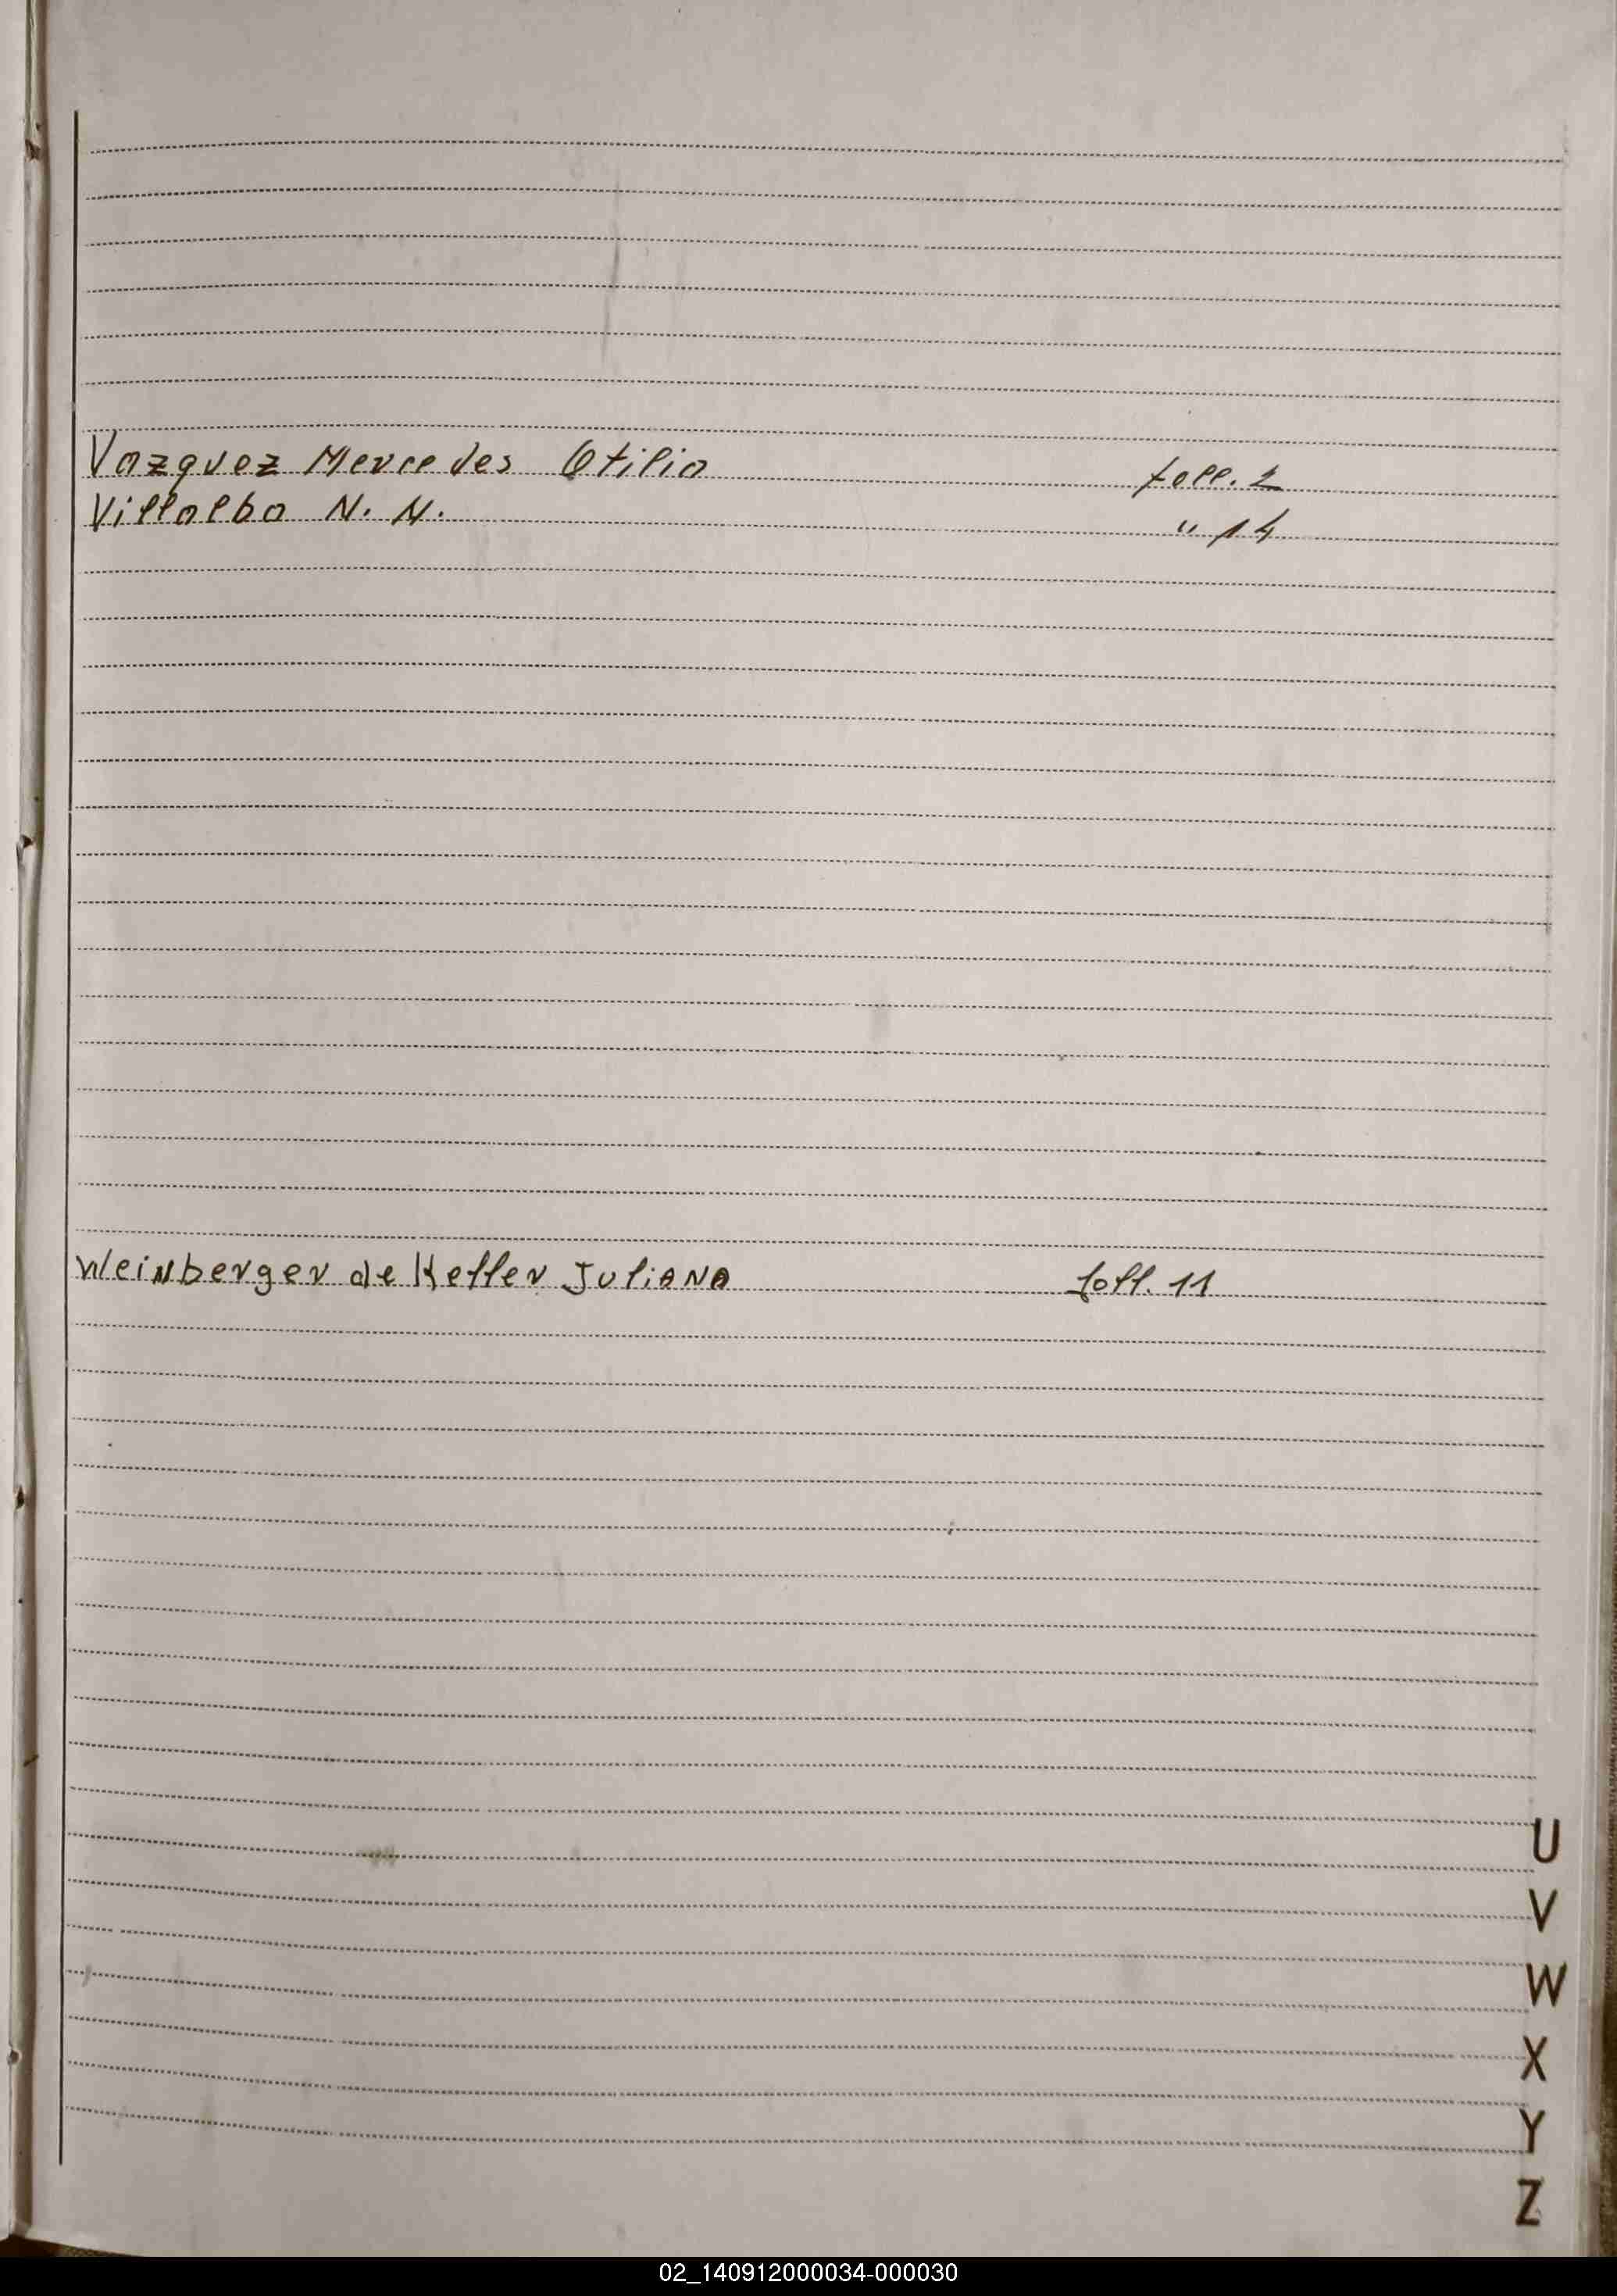 Vazquez Mercedes Otilia foll. 2
Villalba N. N. " 14
Weinberger de Keller Juliana foll. 11
U
V
W
X
Y
Z
02_140912000034-000030